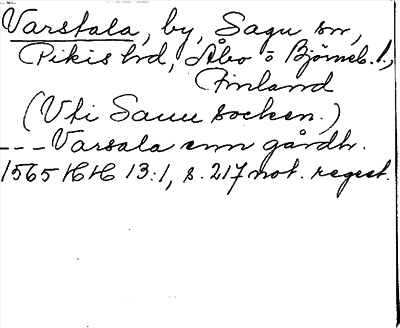 Varstala, by, Sagu sn,
Pikis hd, Åbo o Björneb. l.,
Finland
(Uti Sauu socken.)
--- Varsala enn gårdh.
1565 HH 13:1, s. 217 not. regest.